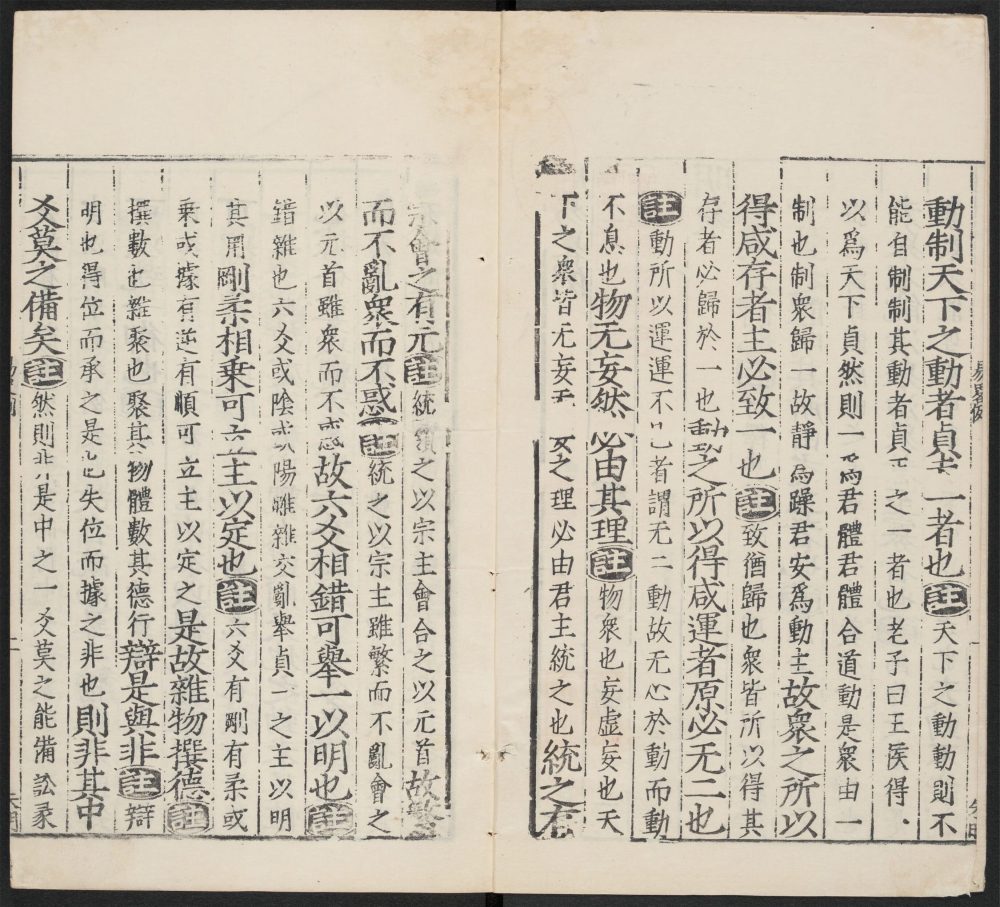 動制天下之動者貞夫一者也註天下之動動則不
能自制制其動者貞正之一者也老子曰王侯得一
以爲天下貞然則一爲君體君體合道動是衆由一
制也制衆歸一故靜爲躁君安爲動主故衆之所以
得咸存者主必致一也註致猶歸也衆皆所以得其
存者必歸於一也動之所以得咸運者原必无二也
註動所以運運不已者謂无二動故无心於動而動
不息也物无妄然必由其理註物衆也妄虛妄也天
下之衆皆无妄之理必由君主統之也統之有
宗會之有元註統領之以宗主會合之以元首故繁
而不亂衆而不惑註統之以宗主雖繁而不亂會之
以元首雖衆而不惑故六爻相錯可舉一以明也註
錯雜也六爻或陰或陽雖雜交亂舉貞一之主以明
其用剛柔相乗可立主以定也註六爻有剛有柔或
乗或據有逆有順可立主以定之是故雜物撰德註
撰數也雜聚也聚其物體數其德行辯是與非註辯
明也得位而承之是也失位而據之非也則非其中
爻莫之備矣註然則非是中之一爻莫之能備訟彖